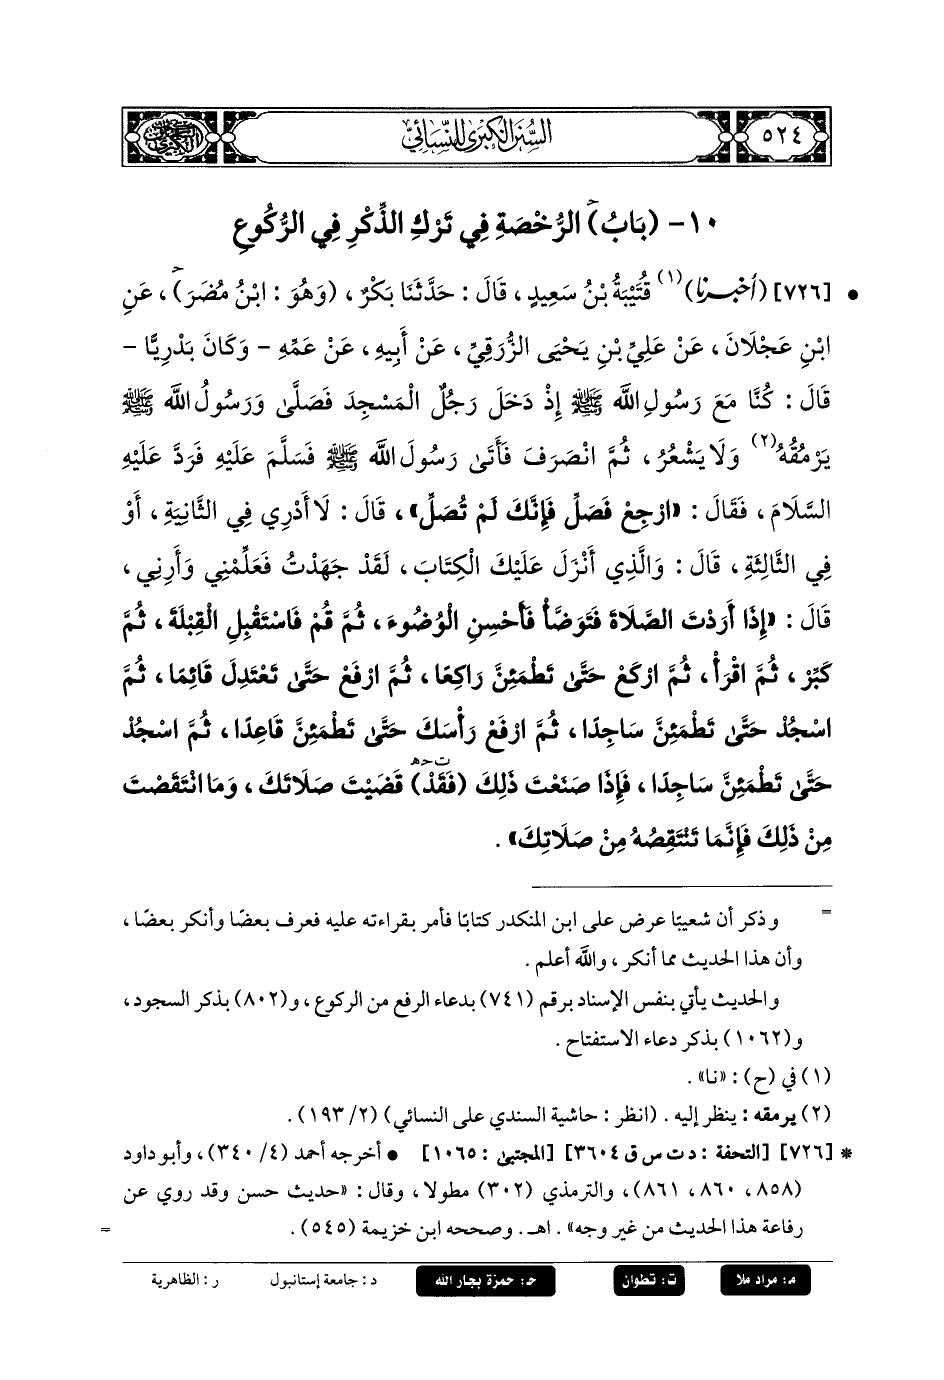 ٥٢٤
السُّنَنُ الكِبْرَىٰ لِلنَّسَائِيِّ
١٠- (بَابُ) الرُّخْصَةِ فِي تَرْكِ الذِّكْرِ فِي الرُّكُوعِ
• [٧٢٦] (أَخْبَرَنَا)(١) قُتَيْبَةُ بْنُ سَعِيدٍ، قَالَ: حَدَّثَنَا بَكْرٌ، (وَهُوَ: ابْنُ مُضَرَ)، عَنِ
ابْنِ عَجْلَانَ، عَنْ عَلِيِّ بْنِ يَحْيَى الزُّرَقِيِّ، عَنْ أَبِيهِ، عَنْ عَمِّهِ - وَكَانَ بَدْرِيًّا -
قَالَ: كُنَّا مَعَ رَسُولِ اللَّهِ ﷺ إِذْ دَخَلَ رَجُلٌ الْمَسْجِدَ فَصَلَّى وَرَسُولُ اللَّهِ ﷺ
يَرْمُقُهُ(٢) وَلَا يَشْعُرُ، ثُمَّ انْصَرَفَ فَأَتَى رَسُولَ اللَّهِ ﷺ فَسَلَّمَ عَلَيْهِ فَرَدَّ عَلَيْهِ
السَّلَامَ، فَقَالَ: «ارْجِعْ فَصَلِّ فَإِنَّكَ لَمْ تُصَلِّ»، قَالَ: لَا أَدْرِي فِي الثَّانِيَةِ، أَوْ
فِي الثَّالِثَةِ، قَالَ: وَالَّذِي أَنْزَلَ عَلَيْكَ الْكِتَابَ، لَقَدْ جَهَدْتُ فَعَلِّمْنِي وَأَرِنِي،
قَالَ: «إِذَا أَرَدْتَ الصَّلَاةَ فَتَوَضَّأْ فَأَحْسِنِ الْوُضُوءَ، ثُمَّ قُمْ فَاسْتَقْبِلِ الْقِبْلَةَ، ثُمَّ
كَبِّرْ، ثُمَّ اقْرَأْ، ثُمَّ ارْكَعْ حَتَّى تَطْمَئِنَّ رَاكِعًا، ثُمَّ ارْفَعْ حَتَّى تَعْتَدِلَ قَائِمًا، ثُمَّ
اسْجُدْ حَتَّى تَطْمَئِنَّ سَاجِدًا، ثُمَّ ارْفَعْ رَأْسَكَ حَتَّى تَطْمَئِنَّ قَاعِدًا، ثُمَّ اسْجُدْ
حَتَّى تَطْمَئِنَّ سَاجِدًا، فَإِذَا صَنَعْتَ ذَلِكَ (فَقَدْ) قَضَيْتَ صَلَاتَكَ، وَمَا انْتَقَصْتَ
مِنْ ذَلِكَ فَإِنَّمَا تَنْتَقِصُهُ مِنْ صَلَاتِكَ».
= وذكر أن شعيبًا عرض على ابن المنكدر كتابًا فأمر بقراءته عليه فعرف بعضًا وأنكر بعضًا،
وأن هذا الحديث مما أنكر، والله أعلم.
والحديث يأتي بنفس الإسناد برقم (٧٤١) بدعاء الرفع من الركوع، و(٨٠٢) بذكر السجود،
و(١٠٦٢) بذكر دعاء الاستفتاح.
(١) في (ح): «نا».
(٢) يرمقه: ينظر إليه. (انظر: حاشية السندي على النسائي) (٢/ ١٩٣).
* [٧٢٦] [التحفة: د ت س ق ٣٦٠٤] [المجتبى: ١٠٦٥] • أخرجه أحمد (٤/ ٣٤٠)، وأبو داود
(٨٥٨، ٨٦٠، ٨٦١)، والترمذي (٣٠٢) مطولا، وقال: «حديث حسن وقد روي عن
رفاعة هذا الحديث من غير وجه». اهـ. وصححه ابن خزيمة (٥٤٥). =
م: مراد ملا ت: تطوان حـ: حمزة بجار الله د: جامعة إستانبول ر: الظاهرية